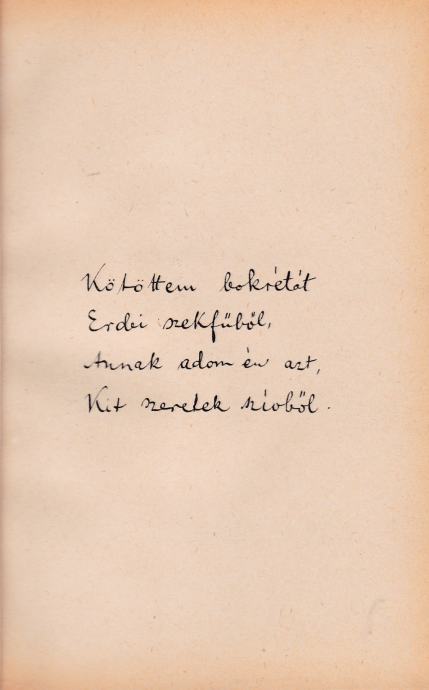 Kötöttem bokrétát
Erdei szekfűből,
Annak adom én azt,
Kit szeretek szivből.